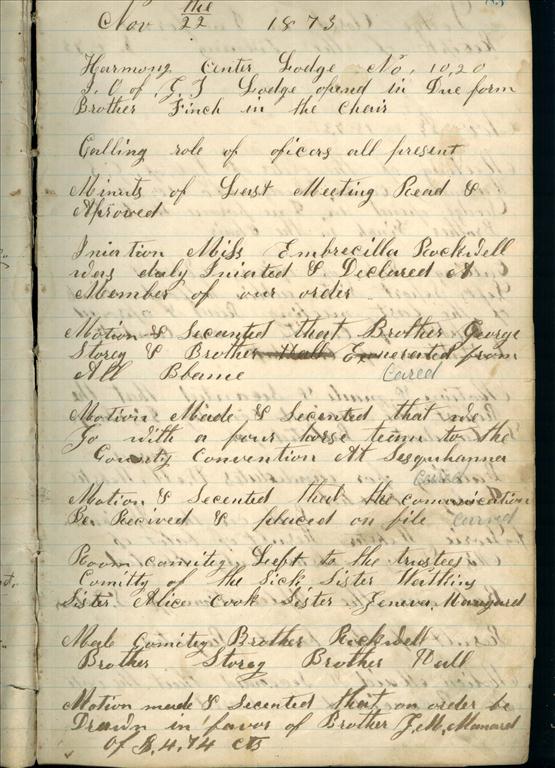 the
Nov 22 1873
Harmony Center Lodge No, 10,20
I. O of G. T Lodge opend in Due form
Brother Finch in the Chair
Calling role of oficers all present
Minuts of Last Meeting Read &
Aproved
Iniation Miss Embrecilla Rockwell
was duly Iniated & Declared A
Member of our order
Motion & Secanted that Brother George
Storey & Brother Hall Exnerated from
All Blame Cared
Motion Made & Secented that we
Go with a four horse team to the
County Convention At Susquhanna
Caried
Motion & Secented that the comunication
Be Recived & placed on file carred
Room comitey Left to the trustees
Comitty of the Sick Sister Watkins
Sister Alice Cook Sister Geneva Maynard
Male Comitey Brother Rockwell
Brother Storey Brother Hall
Motion made & Secented that an order be
Drawn in favor of Brother J. M. Manard
Of $,4,74 cts